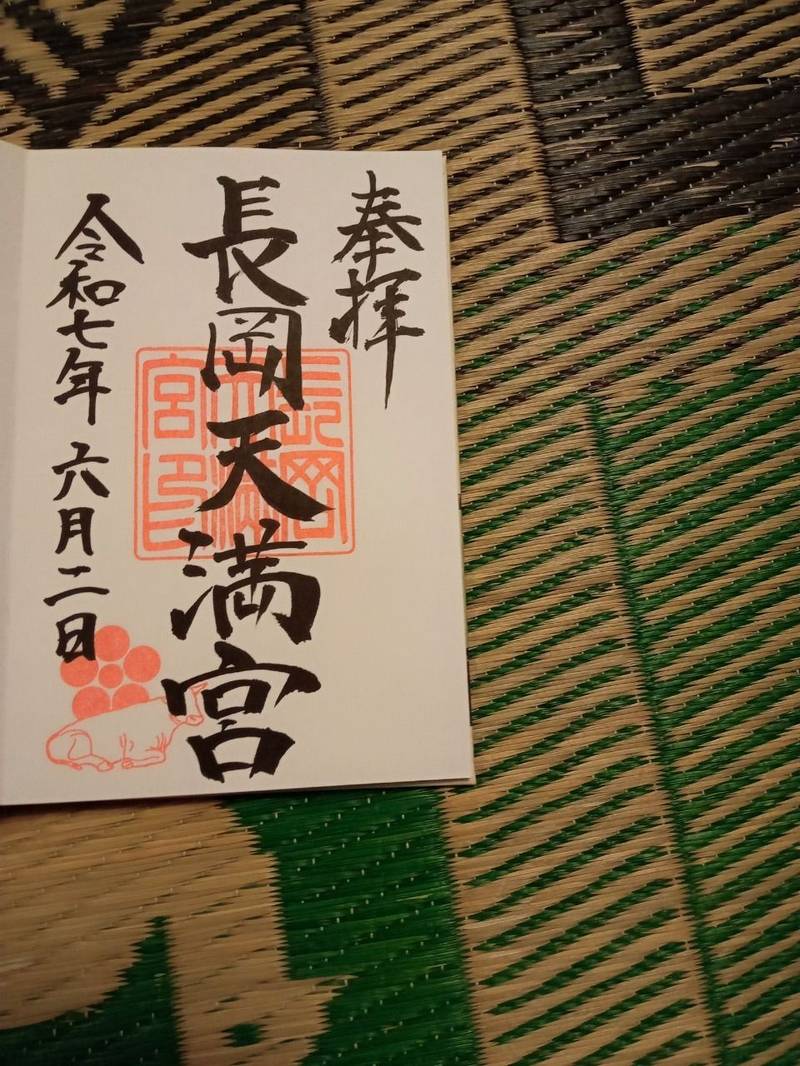 奉拝
長岡天満宮
令和七年六月二日
長岡
天満
宮印